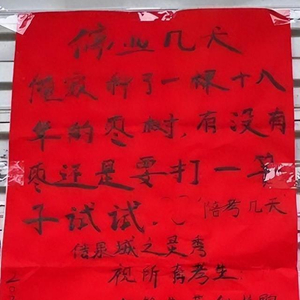 停业几天
俺家种了一棵十八
年的枣树,有没有
枣还是要打一竿
子试试.
陪考几天
果城之秀
祝所有考生